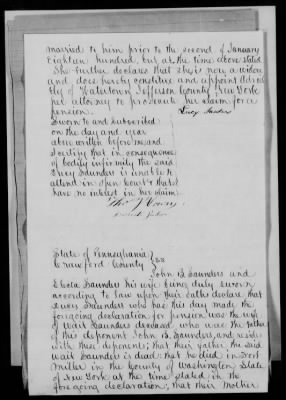 married to him prior to the second of January
Eighteen hundred, but at the time above stated
She further declares that she is now a widow
and does hereby constitute and appoint
of Watertown Jefferson County New York
her attorney to prosecute her claim for a
pension.
Lucy Saunders
Sworn to and subscribed
on the day and year
above written before me and
I certify that in consequence
of bodily infirmity the said
Lucy Saunders is unable to
attend in open Court & that I
have no interest in her claim.
State of Pennsylvania
Crawford County } SS
John B. Saunders and
Saunders his wife being duly sworn
according to law upon their oaths declare that
Lucy Saunders who has this day made the
foregoing declaration for pension was the wife
of Wait Saunders deceased who was the father
of this deponent John B. Saunders, and resides
with these deponents; that their father the said
Wait Saunders is dead: that he died in Fort
Miller in the County of Washington State
of New York at the time stated in the
foregoing declaration; that their Mother